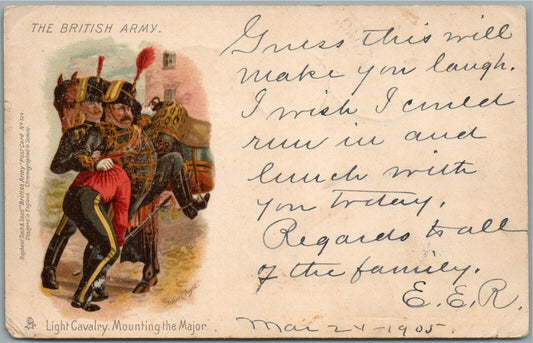 THE BRITISH ARMY.
Guess this will
make you laugh.
I wish I could
run in and
lunch with
you today.
Regards to all
of the family.
E. E. R.
Mar 24-1905.
Raphael Tuck & Sons' "British Army" Post Card Nº
Designed in England. Chromographed in Saxony.
Light Cavalry. Mounting the Major.